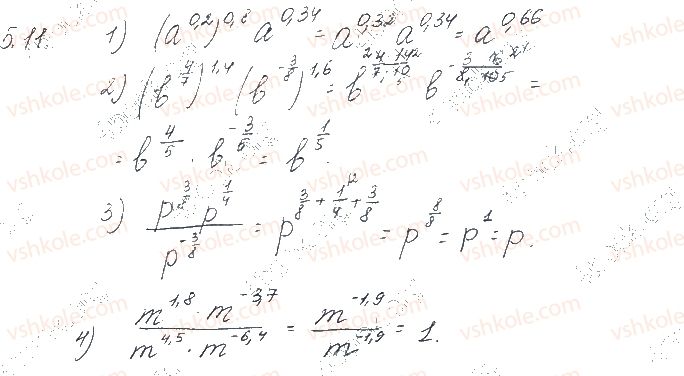 5.11. 1) (a^{0,2})^{0,8} a^{0,34} = a^{0,32} a^{0,34} = a^{0,66}
2) (b^{4/7})^{1,4} (b^{-3/8})^{1,6} = b^{4·14/7·10} b^{-3·16/8·10} =
= b^{4/5} · b^{-3/5} = b^{1/5}.
3) \frac{p^{3/8} p^{1/4}}{p^{-3/8}} = p^{3/8 + 1/4 + 3/8} = p^{8/8} = p^1 = p.
4) \frac{m^{1,8} m^{-3,7}}{m^{4,5} · m^{-6,4}} = \frac{m^{-1,9}}{m^{-1,9}} = 1.
vshkole.com